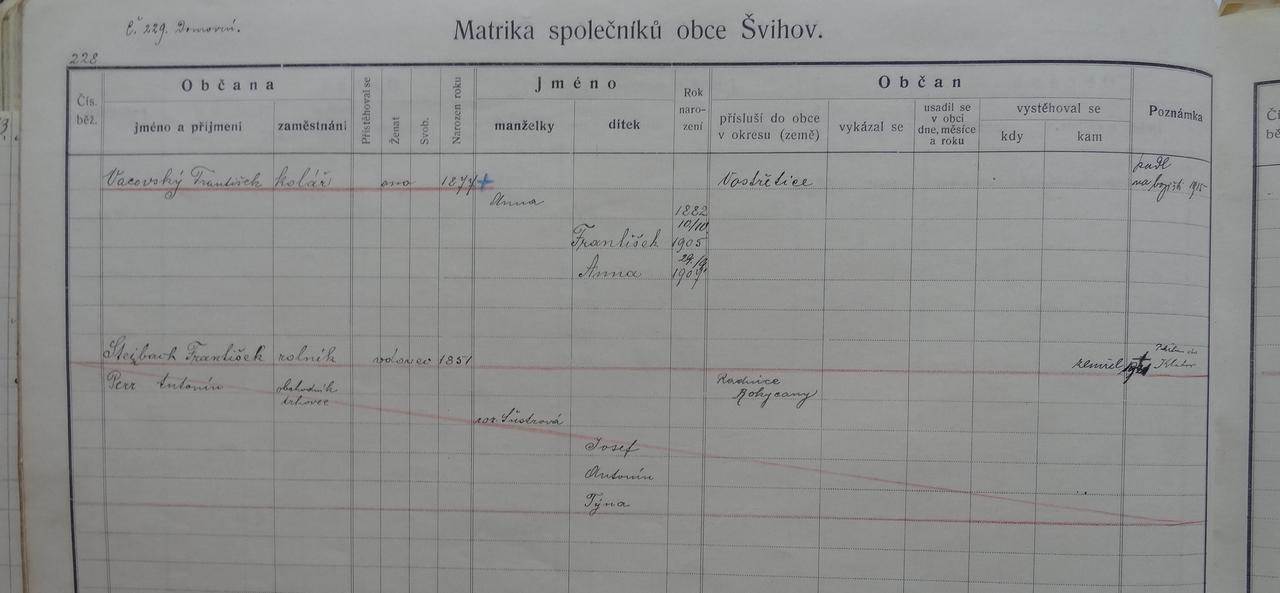 Č. 229. Domovní.
Matrika společníků obce Švihov.
228
Čís. běž.
Občana
jméno a příjmení
zaměstnání
Přistěhoval se
Ženat
Svob.
Narozen roku
Jméno
manželky
dítek
Rok naro-
zení
Občan
přísluší do obce
v okresu (země)
vykázal se
usadil se
v obci
dne, měsíce
a roku
vystěhoval se
kdy
kam
Poznámka
Vacovský František kolář ano 1877 + Vostřetice padl
na bojišti 1915
Anna 1882
10/10
František 1905
29/9
Anna 1907
Stejbach František rolník vdovec 1851 zemřel
Perr Antonín obchodník
trhovec
Radnice
Rokycany
roz. Šustrová
Josef
Antonín
Týna